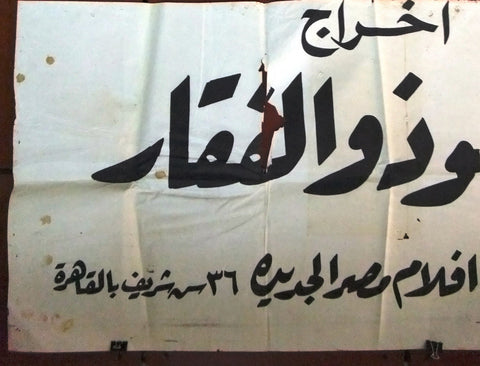 اخراج
و ذو الفقار
افلام مصر الجديدة ٣٦ ش شريف بالقاهرة